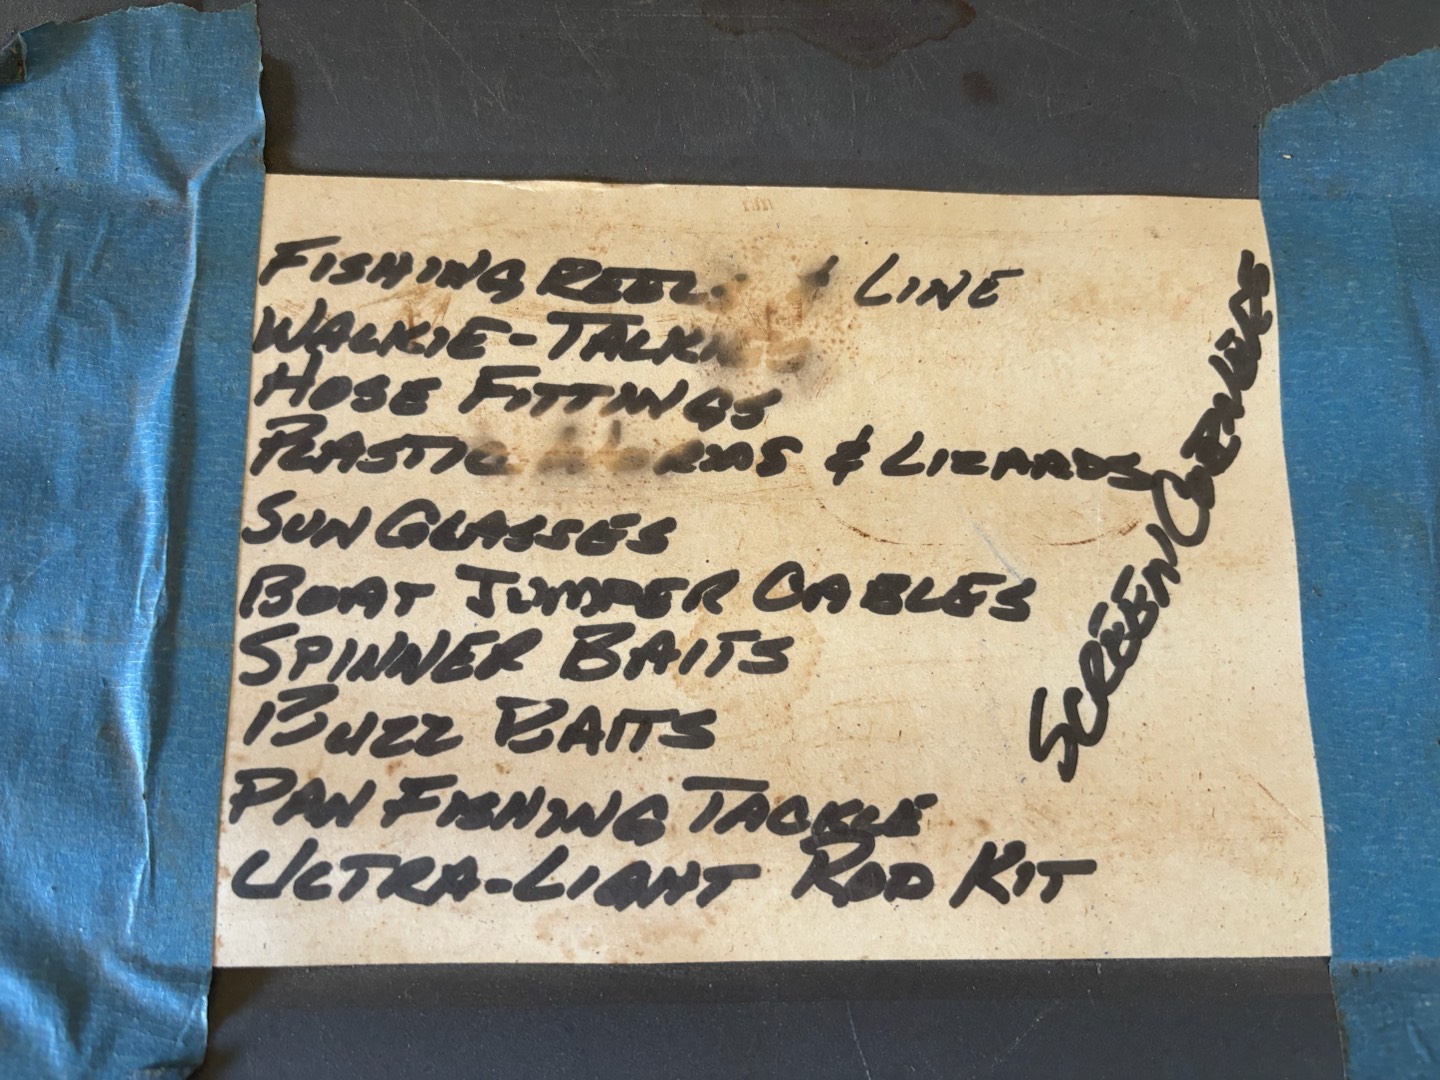 FISHING REEL & LINE
WALKIE-
HOSE FITTINGS
PLASTIC & LIZARDS
SUNGLASSES
BOAT JUMPER CABLES
SPINNER BAITS
BUZZ BAITS
PAN FISHING TACKLE
ULTRA-LIGHT ROD KIT
SCREEN CORNERS